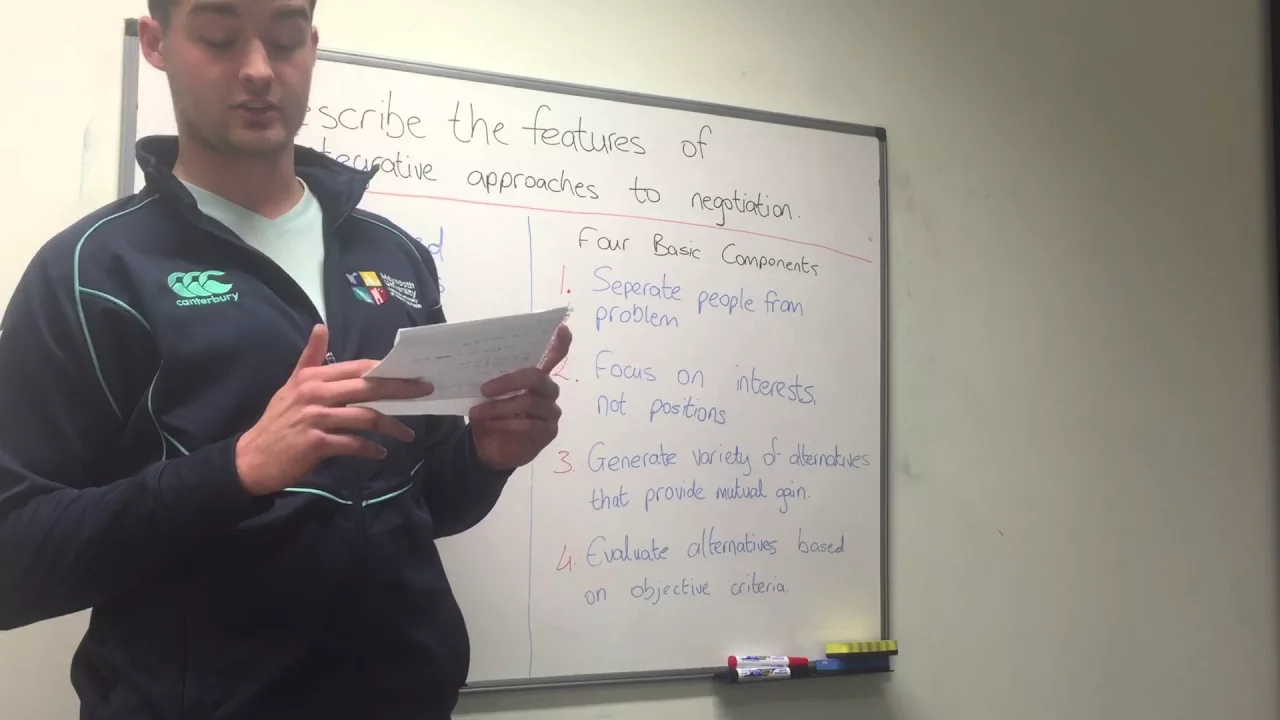 escribe the features of
tegrative approaches to negotiation.
Four Basic Components
1. Seperate people from
problem
2. Focus on interests,
not positions
3 Generate variety of alternatives
that provide mutual gain.
4. Evaluate alternatives based
on objective criteria.
canterbury
Maynooth
University